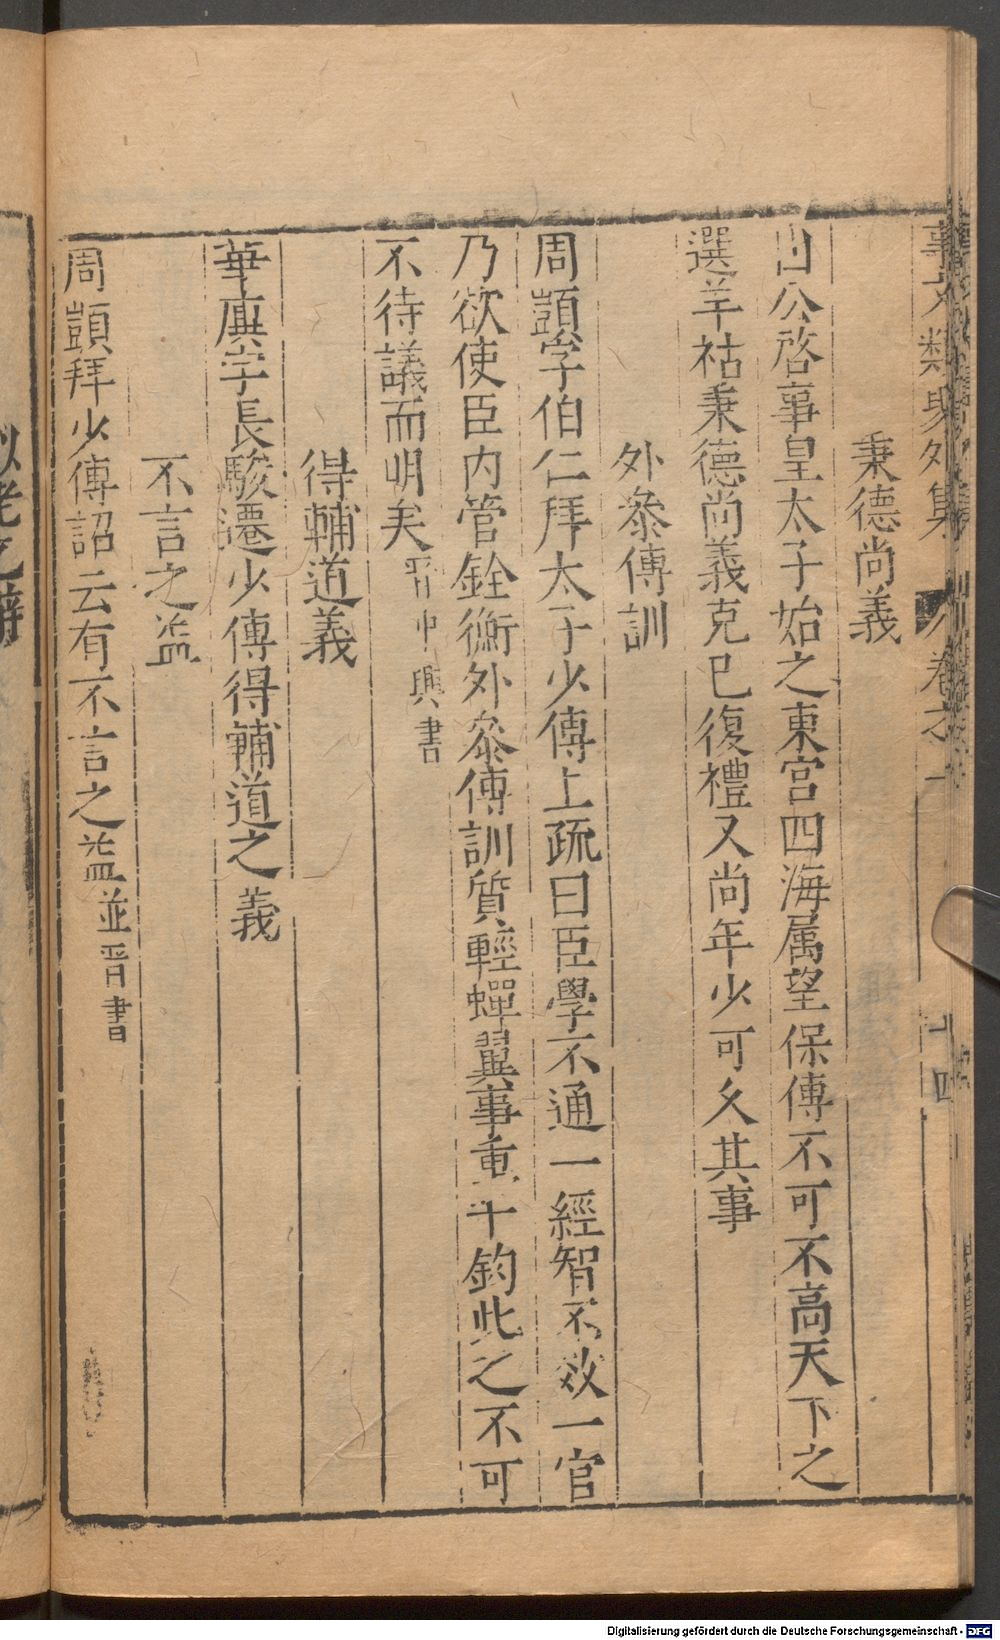 事文類聚外集 卷之一 十四
秉德尚義
山公啓事皇太子始之東宮四海属望保傅不可不高天下之
選羊祜秉德尚義克已復禮又尚年少可久其事
外叅傅訓
周顗字伯仁拜太子少傅上疏曰臣學不通一經智不效一官
乃欲使臣内管銓衡外叅傅訓質輕蟬翼事重千鈞此之不可
不待議而明矣晉中興書
得輔道義
華廙字長駿遷少傅得輔道之義
不言之益
周顗拜少傅詔云有不言之益並晉書
Digitalisierung gefördert durch die Deutsche Forschungsgemeinschaft - DFG